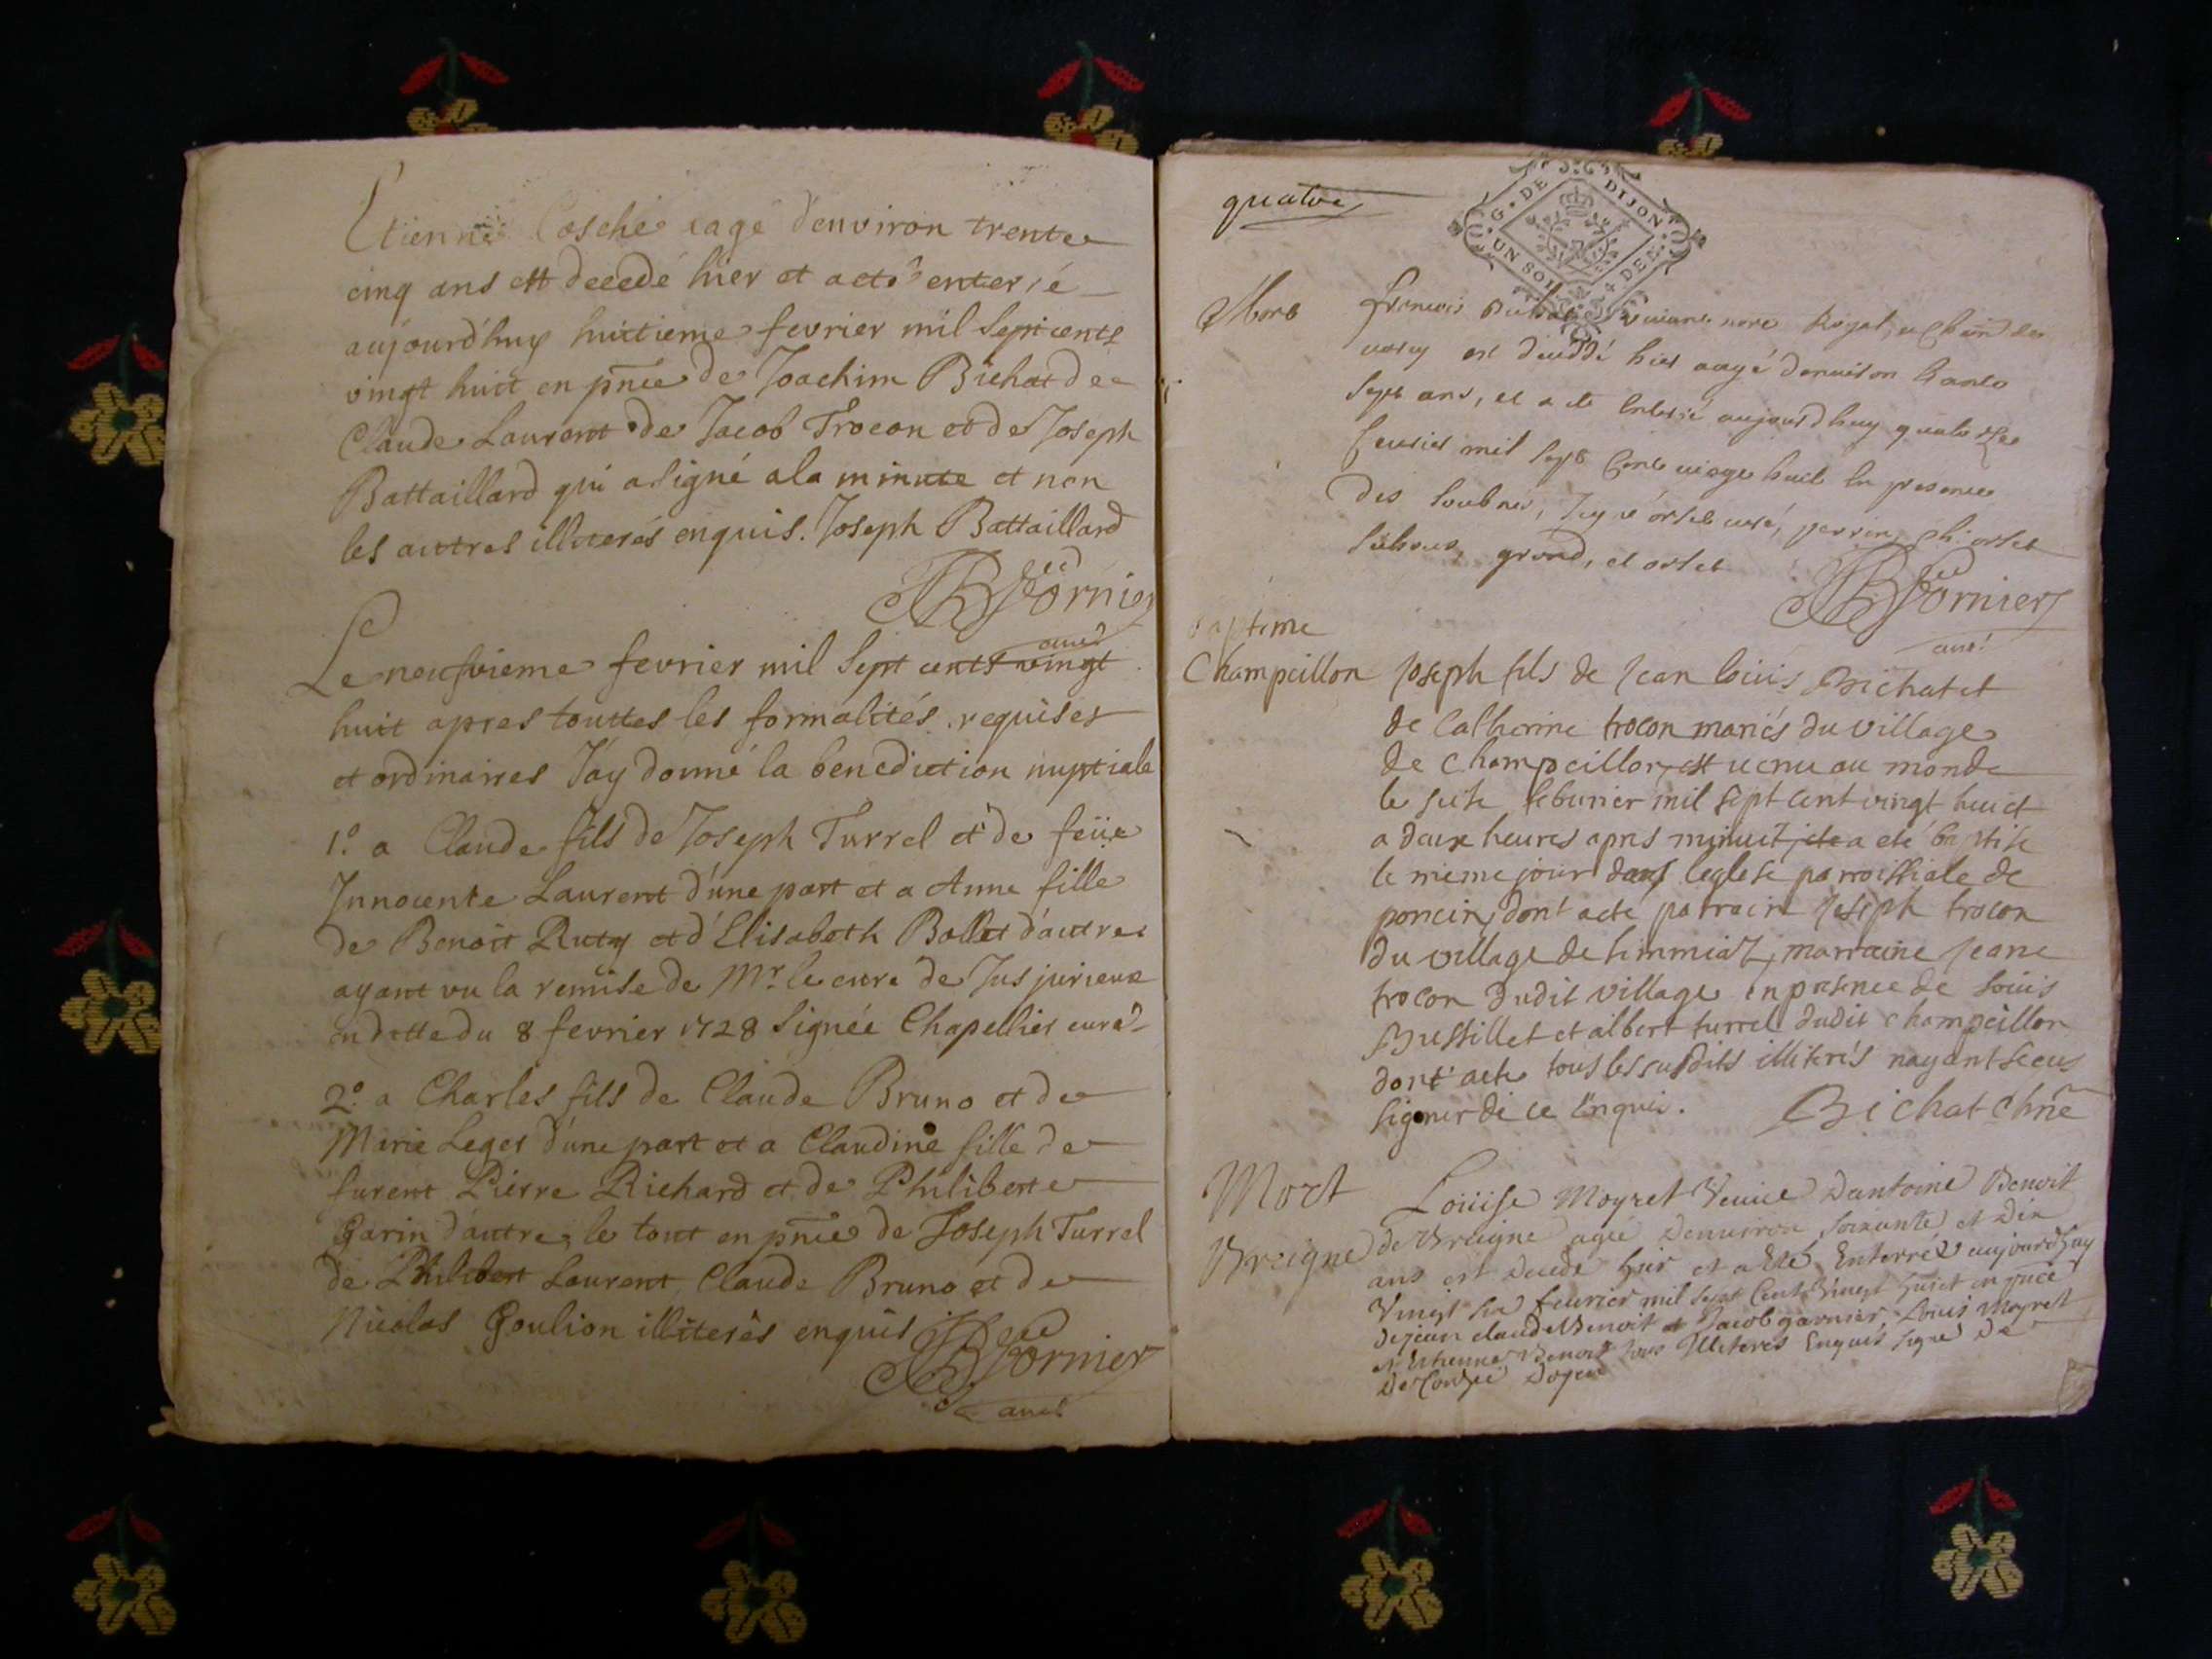 Etienne Cosché eagé d'environ trente
cinq ans est decedé hier et a eté enterré
aujourd'huy huitieme fevrier mil sept cents
vingt huit en pñce de Joachim Bichat de
Claude Laurent de Jacob Trocon et de Joseph
Battaillard qui a signé a la minute et non
les autres illiterés enquis. Joseph Battaillard
Fornier
curé
Le neufvieme fevrier mil sept cents vingt
huit apres touttes les formalités requises
et ordinaires J'ay donné la benediction nuptiale
1.º a Claude fils de Joseph Turrel et de feüe
Innocente Laurent d'une part et a Anne fille
de Benoit Ruty et d'Elisabeth Ballet d'autre
ayant vu la remise de Mr. le curé de Jusjurieux
en datte du 8 fevrier 1728 signée Chapellier curé
2.º a Charles fils de Claude Bruno et de
Marie Leger d'une part et a Claudine fille de
furent Pierre Richard et de Philiberte
Garin d'autre, le tout en pñce de Joseph Turrel
de Philibert Laurent, Claude Bruno et de
Nicolas Goulion illiterés enquis
Fornier
curé
quatre
G. DE DIJON
UN SOL 4 DEN
Mort
francois Royal
est deceddé hier aagé denviron
sept ans, et a eté enterré aujourdhuy quatorze
feurier mil sept cent vingt huit en presence
des soubnés, perrin
grand, et orset
Fornier
curé
Bapteme
Champeillon Joseph fils de Jean louis Bichat et
de Catherine trocon mariés du village
de Champeillon est venu au monde
le seise feburier mil sept cent vingt huict
a deux heures apres minuit et a eté baptise
le meme jour dans leglese parroissiale de
poncin, dont acte parrain Joseph trocon
du village de himmiat, marraine Jeane
trocon dudit village en presnce de louis
Bussillet et albert turrel dudit champeillon
dont acte tous les susdits illiterés nayant sceus
signer de ce enquis. Bichat Chñe
Mort
Breigne
Louise Moyret Veuve Dantoine Benoit
de Breigne agée Denviron soixante et Dix
ans est Decedé hier et a Eté Enterrée aujourdhuy
Vingt six feurier mil sept Cent Vingt huict en pñce
De jean claude Benoit et Jacob garnier, Louis Moyret
et Etienne Benoit tous Illiteres Enquis signé De